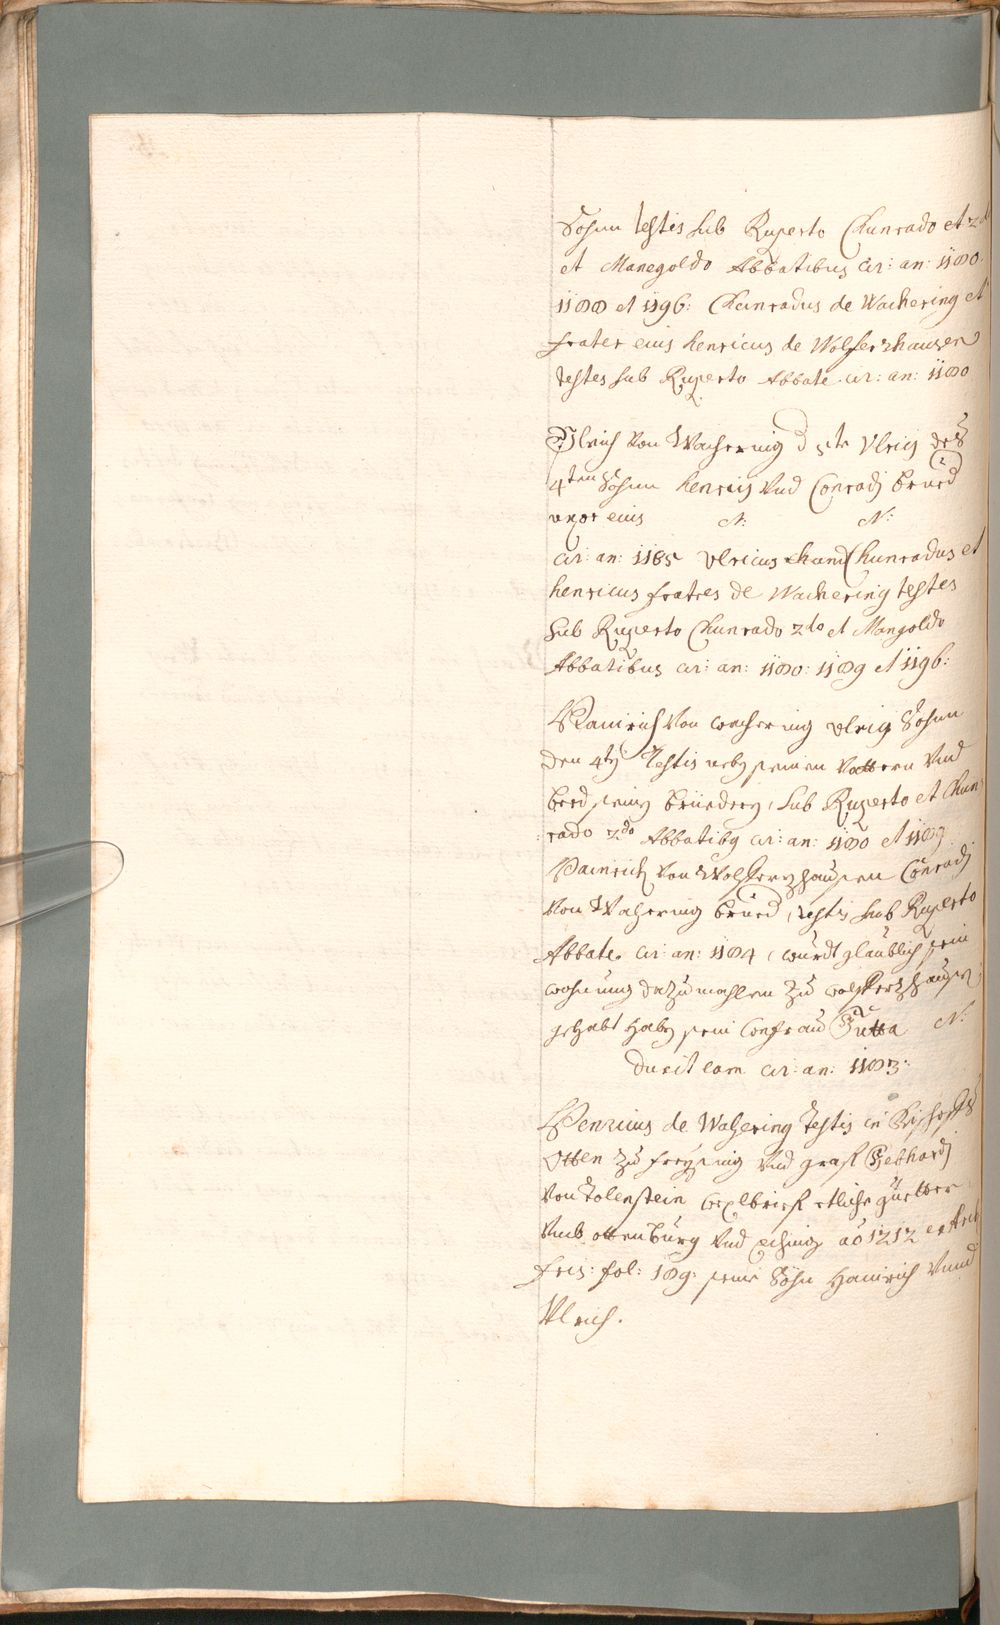 Sohnn testis sub Ruperto Chunrado et 2do
et Manegoldo Abbatibus cir: an: 1180.
1188 et 1196: Chunradus de Wachering et
frater eius henricus de Wolferzhausen
testes sub Ruperto Abbate cir: an: 1180
Ulrich von Wachering d 5te Ulrici deß
4ten Sohnn henrici vnd Conradj brued
uxor eius N: N:
cir: an: 1185 Ulricus Chunradus et
henricus fratres de Wachering testes
sub Ruperto Chunrado 2do et Mangoldo
Abbatibus cir: an: 1180: 1189 et 1196:
Hainrich von wachering Ulrig Sohnn
den 4tn Testis nebn seinem Vattern vnd
beed seinn brüedern, sub Ruperto et Chun
rado 2do Abbatibg cir: an: 1180 et 1189
Hainrich von Wolfferzhausen Conradj
von Wachering brued, testis sub Ruperto
Abbate. cir: an: 1184, wurdt glaublich sein
wohnung dazumahlen zu wolffertzhausn
gehabt habn sein Confrau Jutta N:
duxit eam cir: an: 1183:
Henricus de Wahering Testis in Bischoffs
Otten zu freysing vnd graf Gebhardj
von Tolenstein wexlbrieff etliche güetter
vmb ottenburg vnd eching ao 1212 ex
fris: fol: 189: seine Söhn Hainrich vnnd
Ulrich.